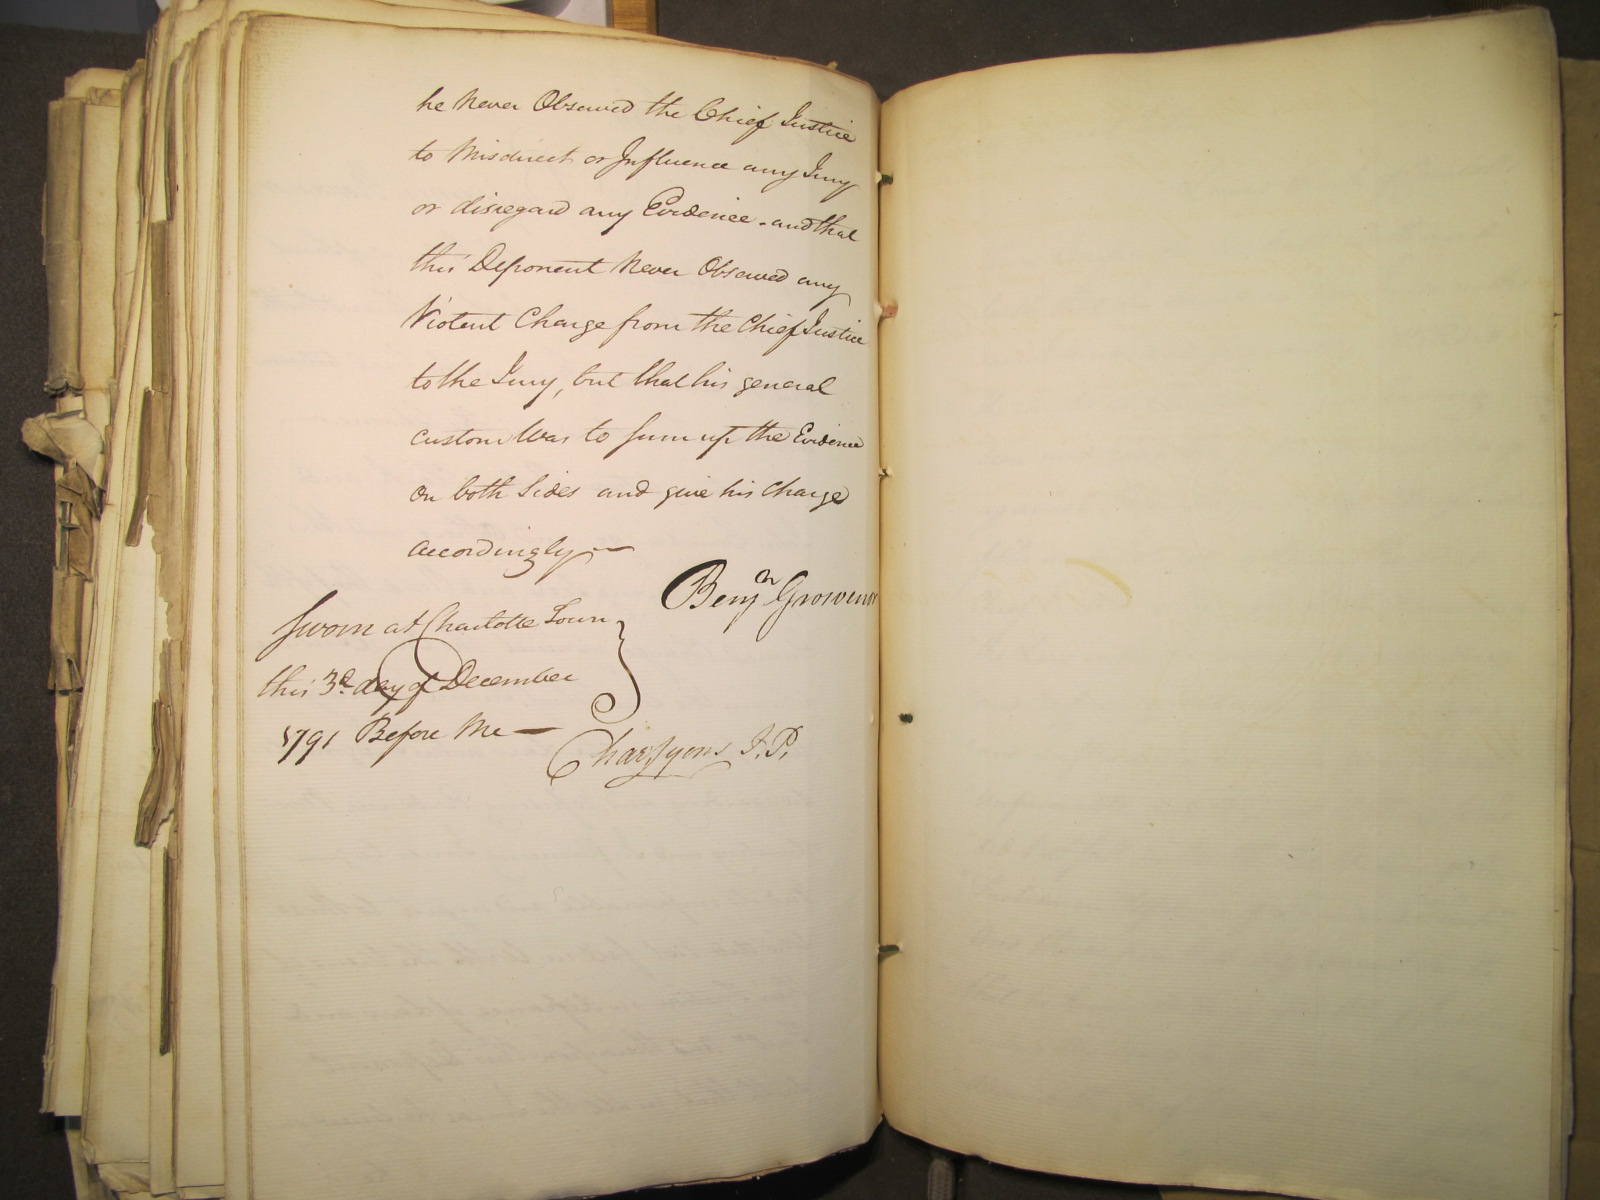 he Never Observed the Chief Justice
to Misdirect or Influence any Jury
or disregard any Evidence - and that
this Deponent Never Observed any
Violent Charge from the Chief Justice
to the Jury, but that his general
custom Was to sum up the Evidence
on both Sides and give his Charge
accordingly —
Benjn Grosvenor
Sworn at Charlotte Town
this 3d day of December
1791 Before Me —
Chas Lyons J.P.